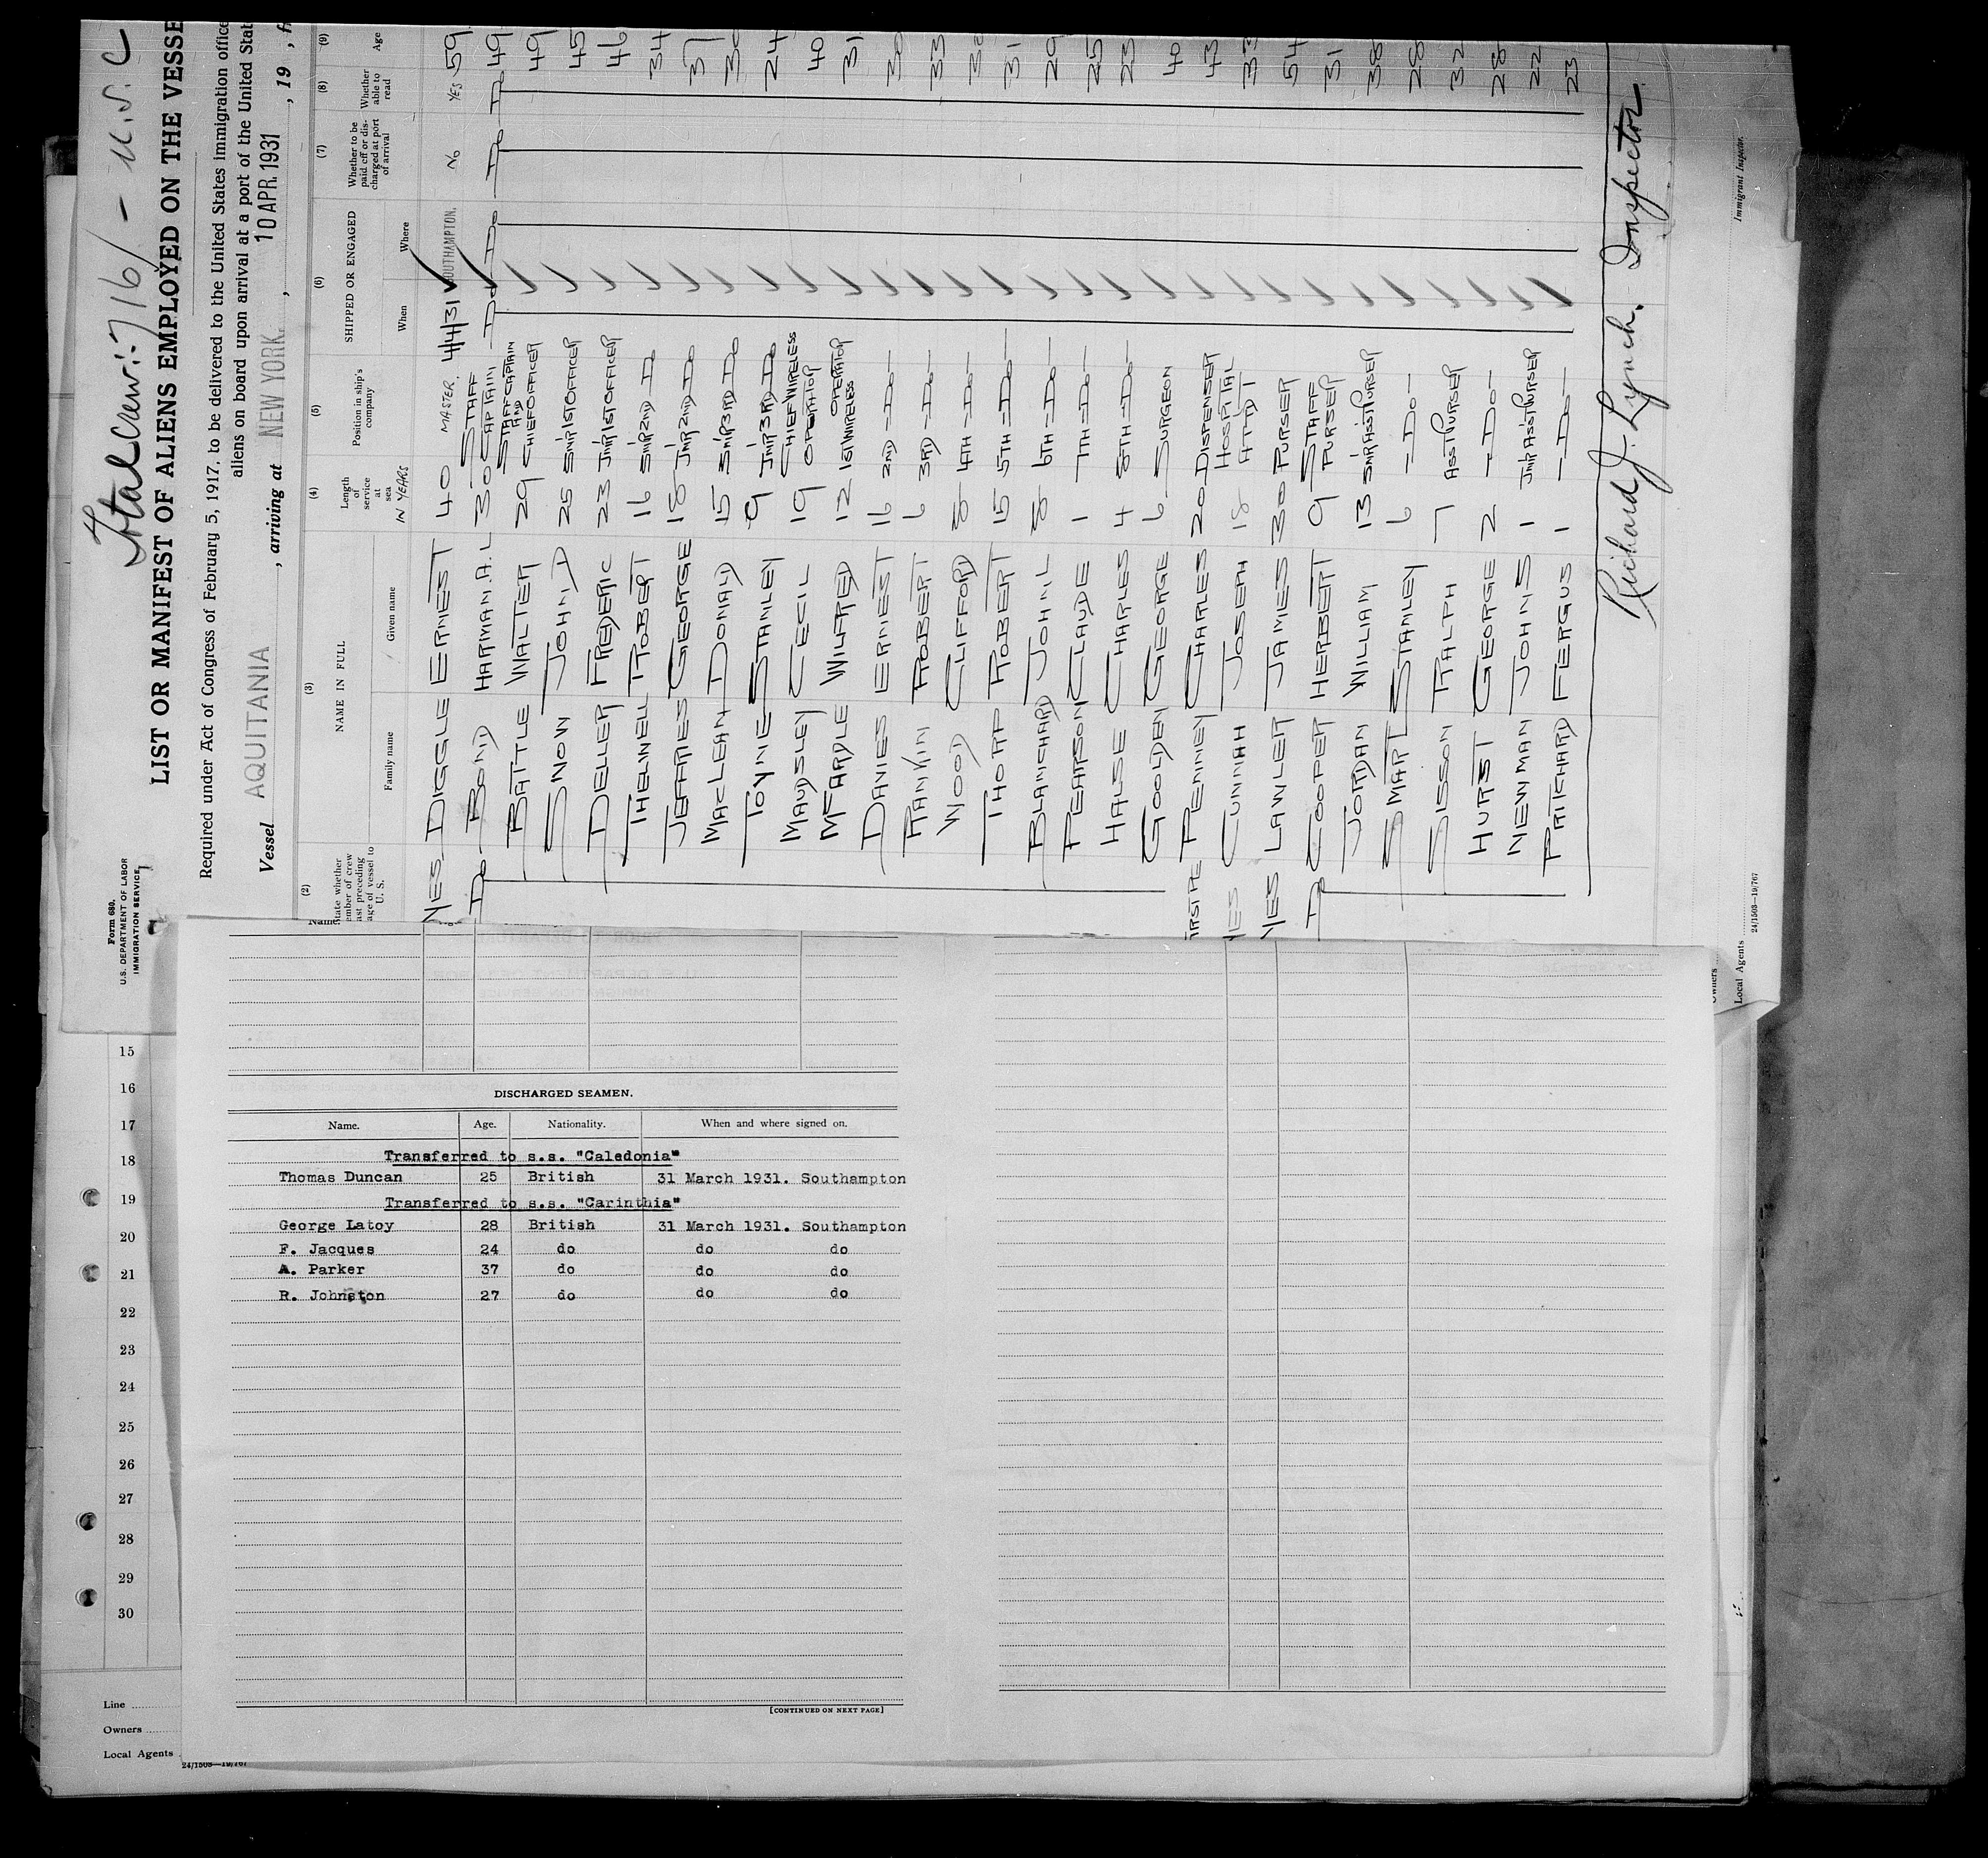 Total Crew:- 716 / - U.S. C
Form 680.
U.S. DEPARTMENT OF LABOR
IMMIGRATION SERVICE
LIST OR MANIFEST OF ALIENS EMPLOYED ON THE VESSE
Required under Act of Congress of February 5, 1917, to be delivered to the United States immigration office
aliens on board upon arrival at a port of the United Stat
Vessel AQUITANIA , arriving at NEW YORK , 10 APR. 1931 , 19
(2) (3) (4) (5) (6) (7) (8) (9)
State whether ember of crew ast preceding age of vessel to U. S.
NAME IN FULL
Family name Given name
Length of service at sea IN YEARS
Position in ship's company
SHIPPED OR ENGAGED
When Where
Whether to be paid off or discharged at port of arrival
Whether able to read
Age
YES DIGGLE ERNEST 40 MASTER. 4/4/31 SOUTHAMPTON. No YES 59
Do BOND HARMAN.A.L 30 STAFF CAPTAIN Do Do Do Do 49
BATTLE WALTER 29 STAFF CAPTAIN AND CHIEF OFFICER 49
SNOW JOHN D 25 SNR 1ST OFFICER 45
DELLER FREDERIC 23 JNR 1ST OFFICER 46
THELWELL ROBERT 16 SNR 2ND Do 34
JEFFRIES GEORGE 18 JNR 2ND Do 37
MACLEAN DONALD 15 SNR 3RD Do
TOYNE STANLEY 9 JNR 3RD Do 24
MAUDSLEY CECIL 19 CHIEF WIRELESS OPERATOR 40
McFARDLE WILFRED 12 1ST WIRELESS OPERATOR 31
DAVIES ERNEST 16 2ND - Do -
RANKIN ROBERT 6 3RD - Do - 33
WOOD CLIFFORD 8 4TH - Do -
THORP ROBERT 15 5TH - Do - 31
BLANCHARD JOHN.L 8 6TH - Do - 29
PEARSON CLAUDE 1 7TH - Do - 25
HALSE CHARLES 4 8TH - Do - 23
GOOLDEN GEORGE 6 SURGEON 40
FIRST PE PENNEY CHARLES 20 DISPENSER 43
YES CUNNAH JOSEPH 18 HOSPITAL ATTDT 33
YES LAWLER JAMES 30 PURSER 54
Do COOPER HERBERT 9 STAFF PURSER 31
JORDAN WILLIAM 13 SNR ASST PURSER 38
SMART STANLEY 6 - Do - 28
SISSON RALPH 7 ASST PURSER 32
HURST GEORGE 2 - Do - 28
NEWMAN JOHN S 1 JNR ASST PURSER 22
PRITCHARD FERGUS 1 - Do - 23
Richard J. Lynch. Inspector
Immigrant Inspector.
Owners
Local Agents
24/1503—19/767
DISCHARGED SEAMEN.
Name. Age. Nationality. When and where signed on.
Transferred to s.s. "Caledonia"
Thomas Duncan 25 British 31 March 1931. Southampton
Transferred to s.s. "Carinthia"
George Latoy 28 British 31 March 1931. Southampton
F. Jacques 24 do do do
A. Parker 37 do do do
R. Johnston 27 do do do
[CONTINUED ON NEXT PAGE]
15
16
17
18
19
20
21
22
23
24
25
26
27
28
29
30
Line
Owners
Local Agents
24/1503—19/767